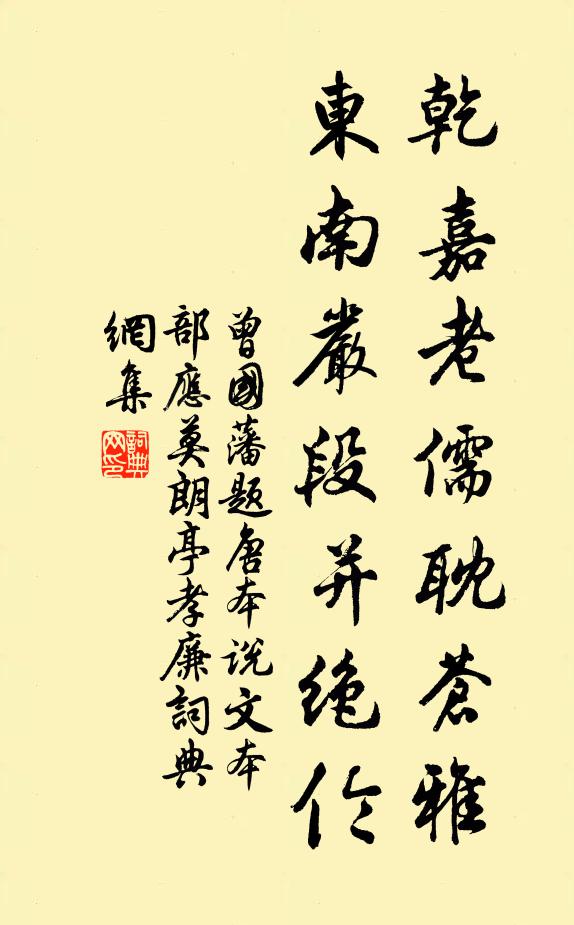 乾嘉老儒耽蒼雅
東南嚴段并絶伦
曾國藩題唐本说文本
部應莫朗亭孝廉詞典
網集
詞典
网印